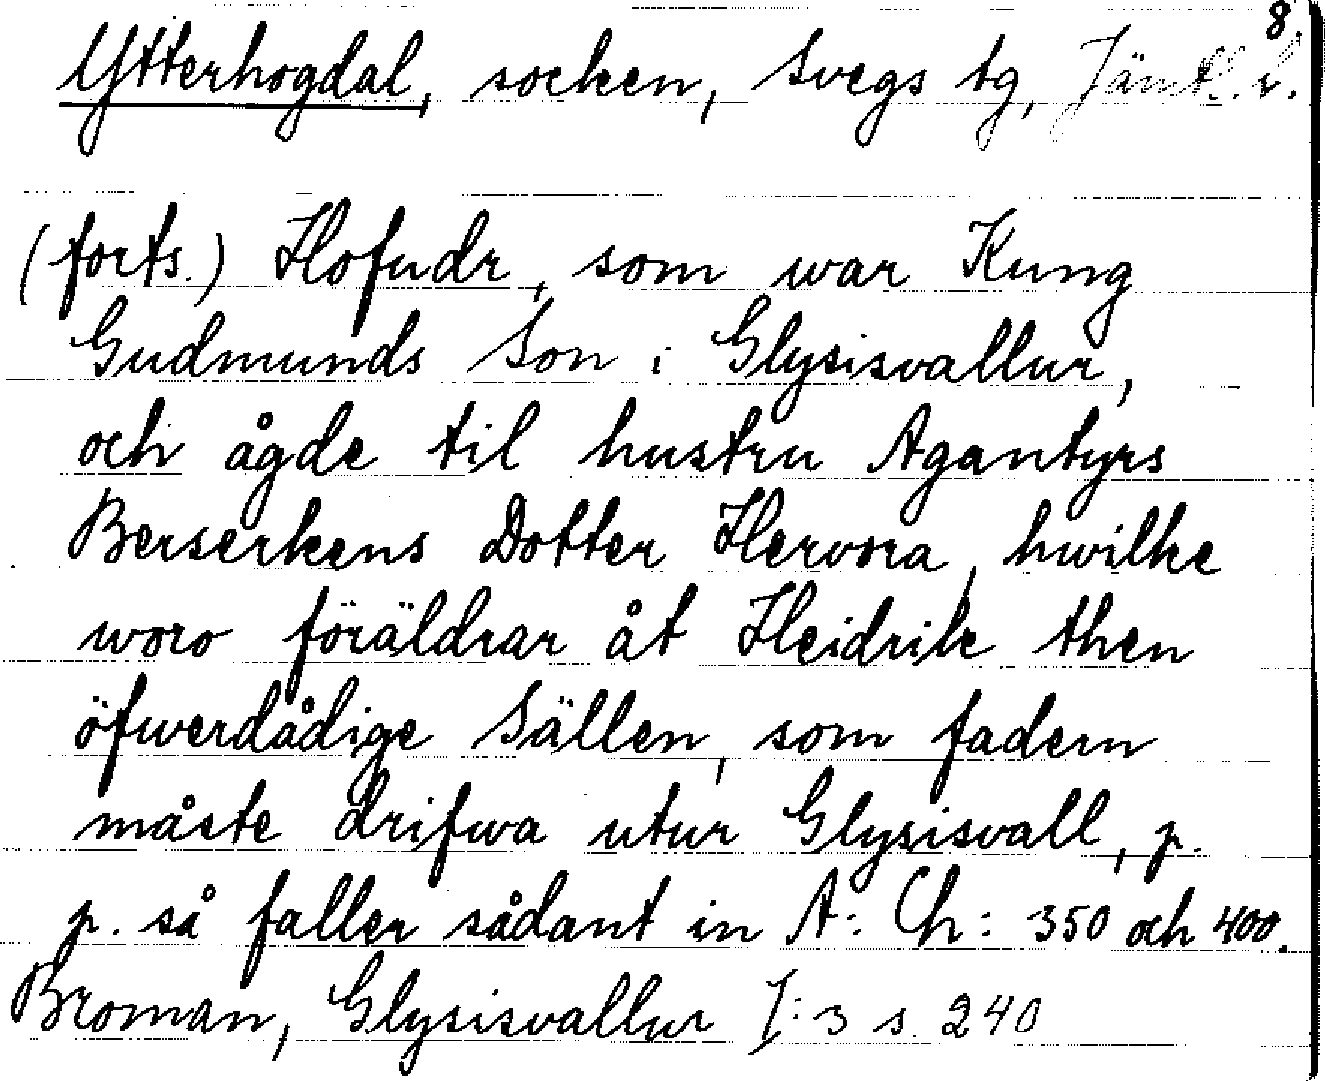 8
Ytterhogdal, socken, Svegs tg, Jämtl. l.
(forts.) Hofudr, som war Kung
Gudmunds Son i Glysisvallur,
och ågde til hustru Agantyrs
Berserkens Dotter Hervora, hwilke
woro föräldrar åt Heidrik then
öfwerdådige Sällen, som fadern
måste drifwa utur Glysisvall, p.
p. så faller sådant in A: Ch: 350 och 400.
Broman, Glysisvallur I:3 s. 240